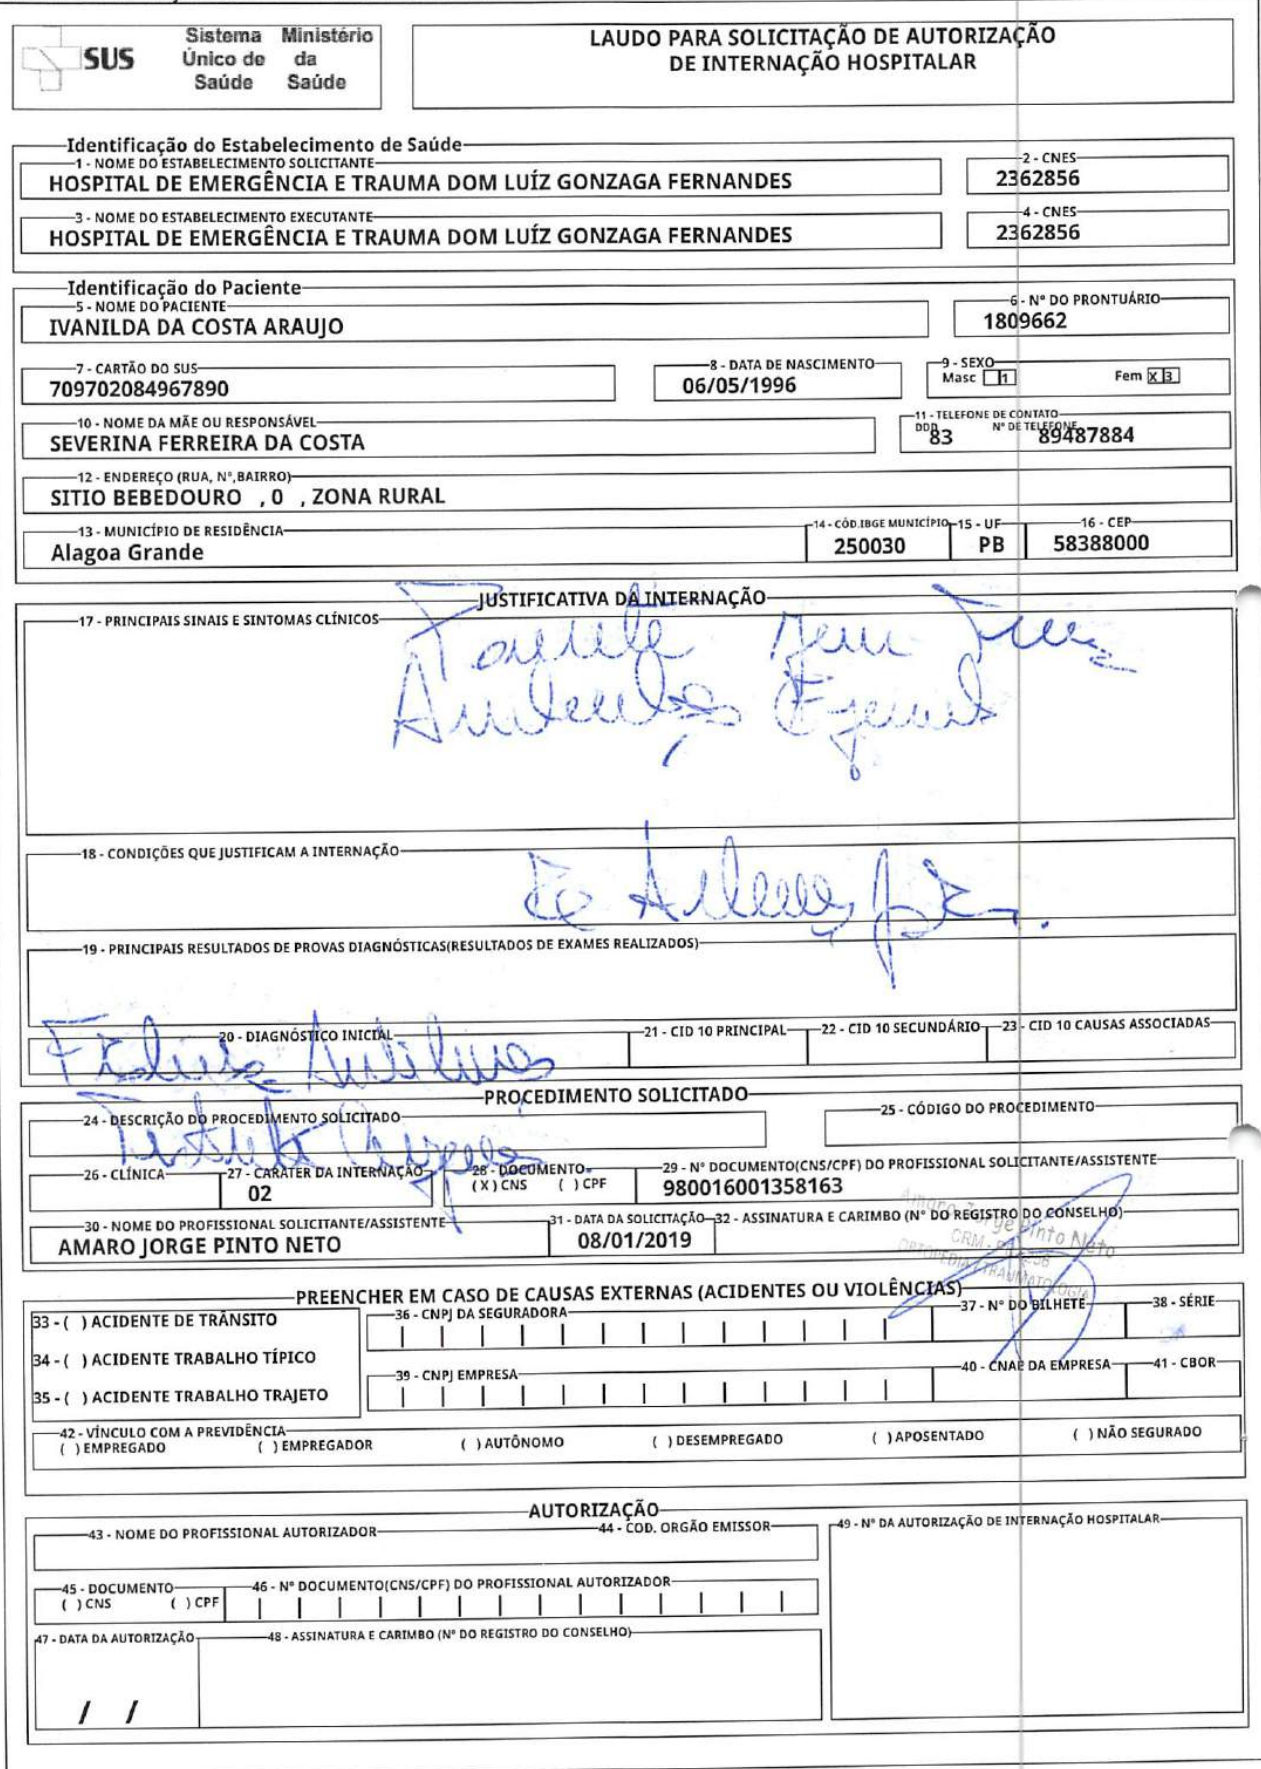 SUS
Sistema Único de Saúde
Ministério da Saúde
LAUDO PARA SOLICITAÇÃO DE AUTORIZAÇÃO
DE INTERNAÇÃO HOSPITALAR
Identificação do Estabelecimento de Saúde
1 - NOME DO ESTABELECIMENTO SOLICITANTE
HOSPITAL DE EMERGÊNCIA E TRAUMA DOM LUÍZ GONZAGA FERNANDES
2 - CNES
2362856
3 - NOME DO ESTABELECIMENTO EXECUTANTE
HOSPITAL DE EMERGÊNCIA E TRAUMA DOM LUÍZ GONZAGA FERNANDES
4 - CNES
2362856
Identificação do Paciente
5 - NOME DO PACIENTE
IVANILDA DA COSTA ARAUJO
6 - Nº DO PRONTUÁRIO
1809662
7 - CARTÃO DO SUS
709702084967890
8 - DATA DE NASCIMENTO
06/05/1996
9 - SEXO
Masc 1 Fem X 3
10 - NOME DA MÃE OU RESPONSÁVEL
SEVERINA FERREIRA DA COSTA
11 - TELEFONE DE CONTATO
DDD Nº DE TELEFONE
83 89487884
12 - ENDEREÇO (RUA, Nº,BAIRRO)
SITIO BEBEDOURO , 0 , ZONA RURAL
13 - MUNICÍPIO DE RESIDÊNCIA
Alagoa Grande
14 - CÓD.IBGE MUNICÍPIO
250030
15 - UF
PB
16 - CEP
58388000
JUSTIFICATIVA DA INTERNAÇÃO
17 - PRINCIPAIS SINAIS E SINTOMAS CLÍNICOS
18 - CONDIÇÕES QUE JUSTIFICAM A INTERNAÇÃO
19 - PRINCIPAIS RESULTADOS DE PROVAS DIAGNÓSTICAS(RESULTADOS DE EXAMES REALIZADOS)
20 - DIAGNÓSTICO INICIAL
21 - CID 10 PRINCIPAL
22 - CID 10 SECUNDÁRIO
23 - CID 10 CAUSAS ASSOCIADAS
PROCEDIMENTO SOLICITADO
24 - DESCRIÇÃO DO PROCEDIMENTO SOLICITADO
25 - CÓDIGO DO PROCEDIMENTO
26 - CLÍNICA
27 - CARÁTER DA INTERNAÇÃO
02
28 - DOCUMENTO
(X) CNS ( ) CPF
29 - Nº DOCUMENTO(CNS/CPF) DO PROFISSIONAL SOLICITANTE/ASSISTENTE
980016001358163
30 - NOME DO PROFISSIONAL SOLICITANTE/ASSISTENTE
AMARO JORGE PINTO NETO
31 - DATA DA SOLICITAÇÃO
08/01/2019
32 - ASSINATURA E CARIMBO (Nº DO REGISTRO DO CONSELHO)
Amaro Jorge Pinto Neto
CRM -
ORTOPEDIA TRAUMATOLOGIA
PREENCHER EM CASO DE CAUSAS EXTERNAS (ACIDENTES OU VIOLÊNCIAS)
33 - ( ) ACIDENTE DE TRÂNSITO
34 - ( ) ACIDENTE TRABALHO TÍPICO
35 - ( ) ACIDENTE TRABALHO TRAJETO
36 - CNPJ DA SEGURADORA
37 - Nº DO BILHETE
38 - SÉRIE
39 - CNPJ EMPRESA
40 - CNAE DA EMPRESA
41 - CBOR
42 - VÍNCULO COM A PREVIDÊNCIA
( ) EMPREGADO ( ) EMPREGADOR ( ) AUTÔNOMO ( ) DESEMPREGADO ( ) APOSENTADO ( ) NÃO SEGURADO
AUTORIZAÇÃO
43 - NOME DO PROFISSIONAL AUTORIZADOR
44 - COD. ORGÃO EMISSOR
49 - Nº DA AUTORIZAÇÃO DE INTERNAÇÃO HOSPITALAR
45 - DOCUMENTO
( ) CNS ( ) CPF
46 - Nº DOCUMENTO(CNS/CPF) DO PROFISSIONAL AUTORIZADOR
47 - DATA DA AUTORIZAÇÃO
/ /
48 - ASSINATURA E CARIMBO (Nº DO REGISTRO DO CONSELHO)